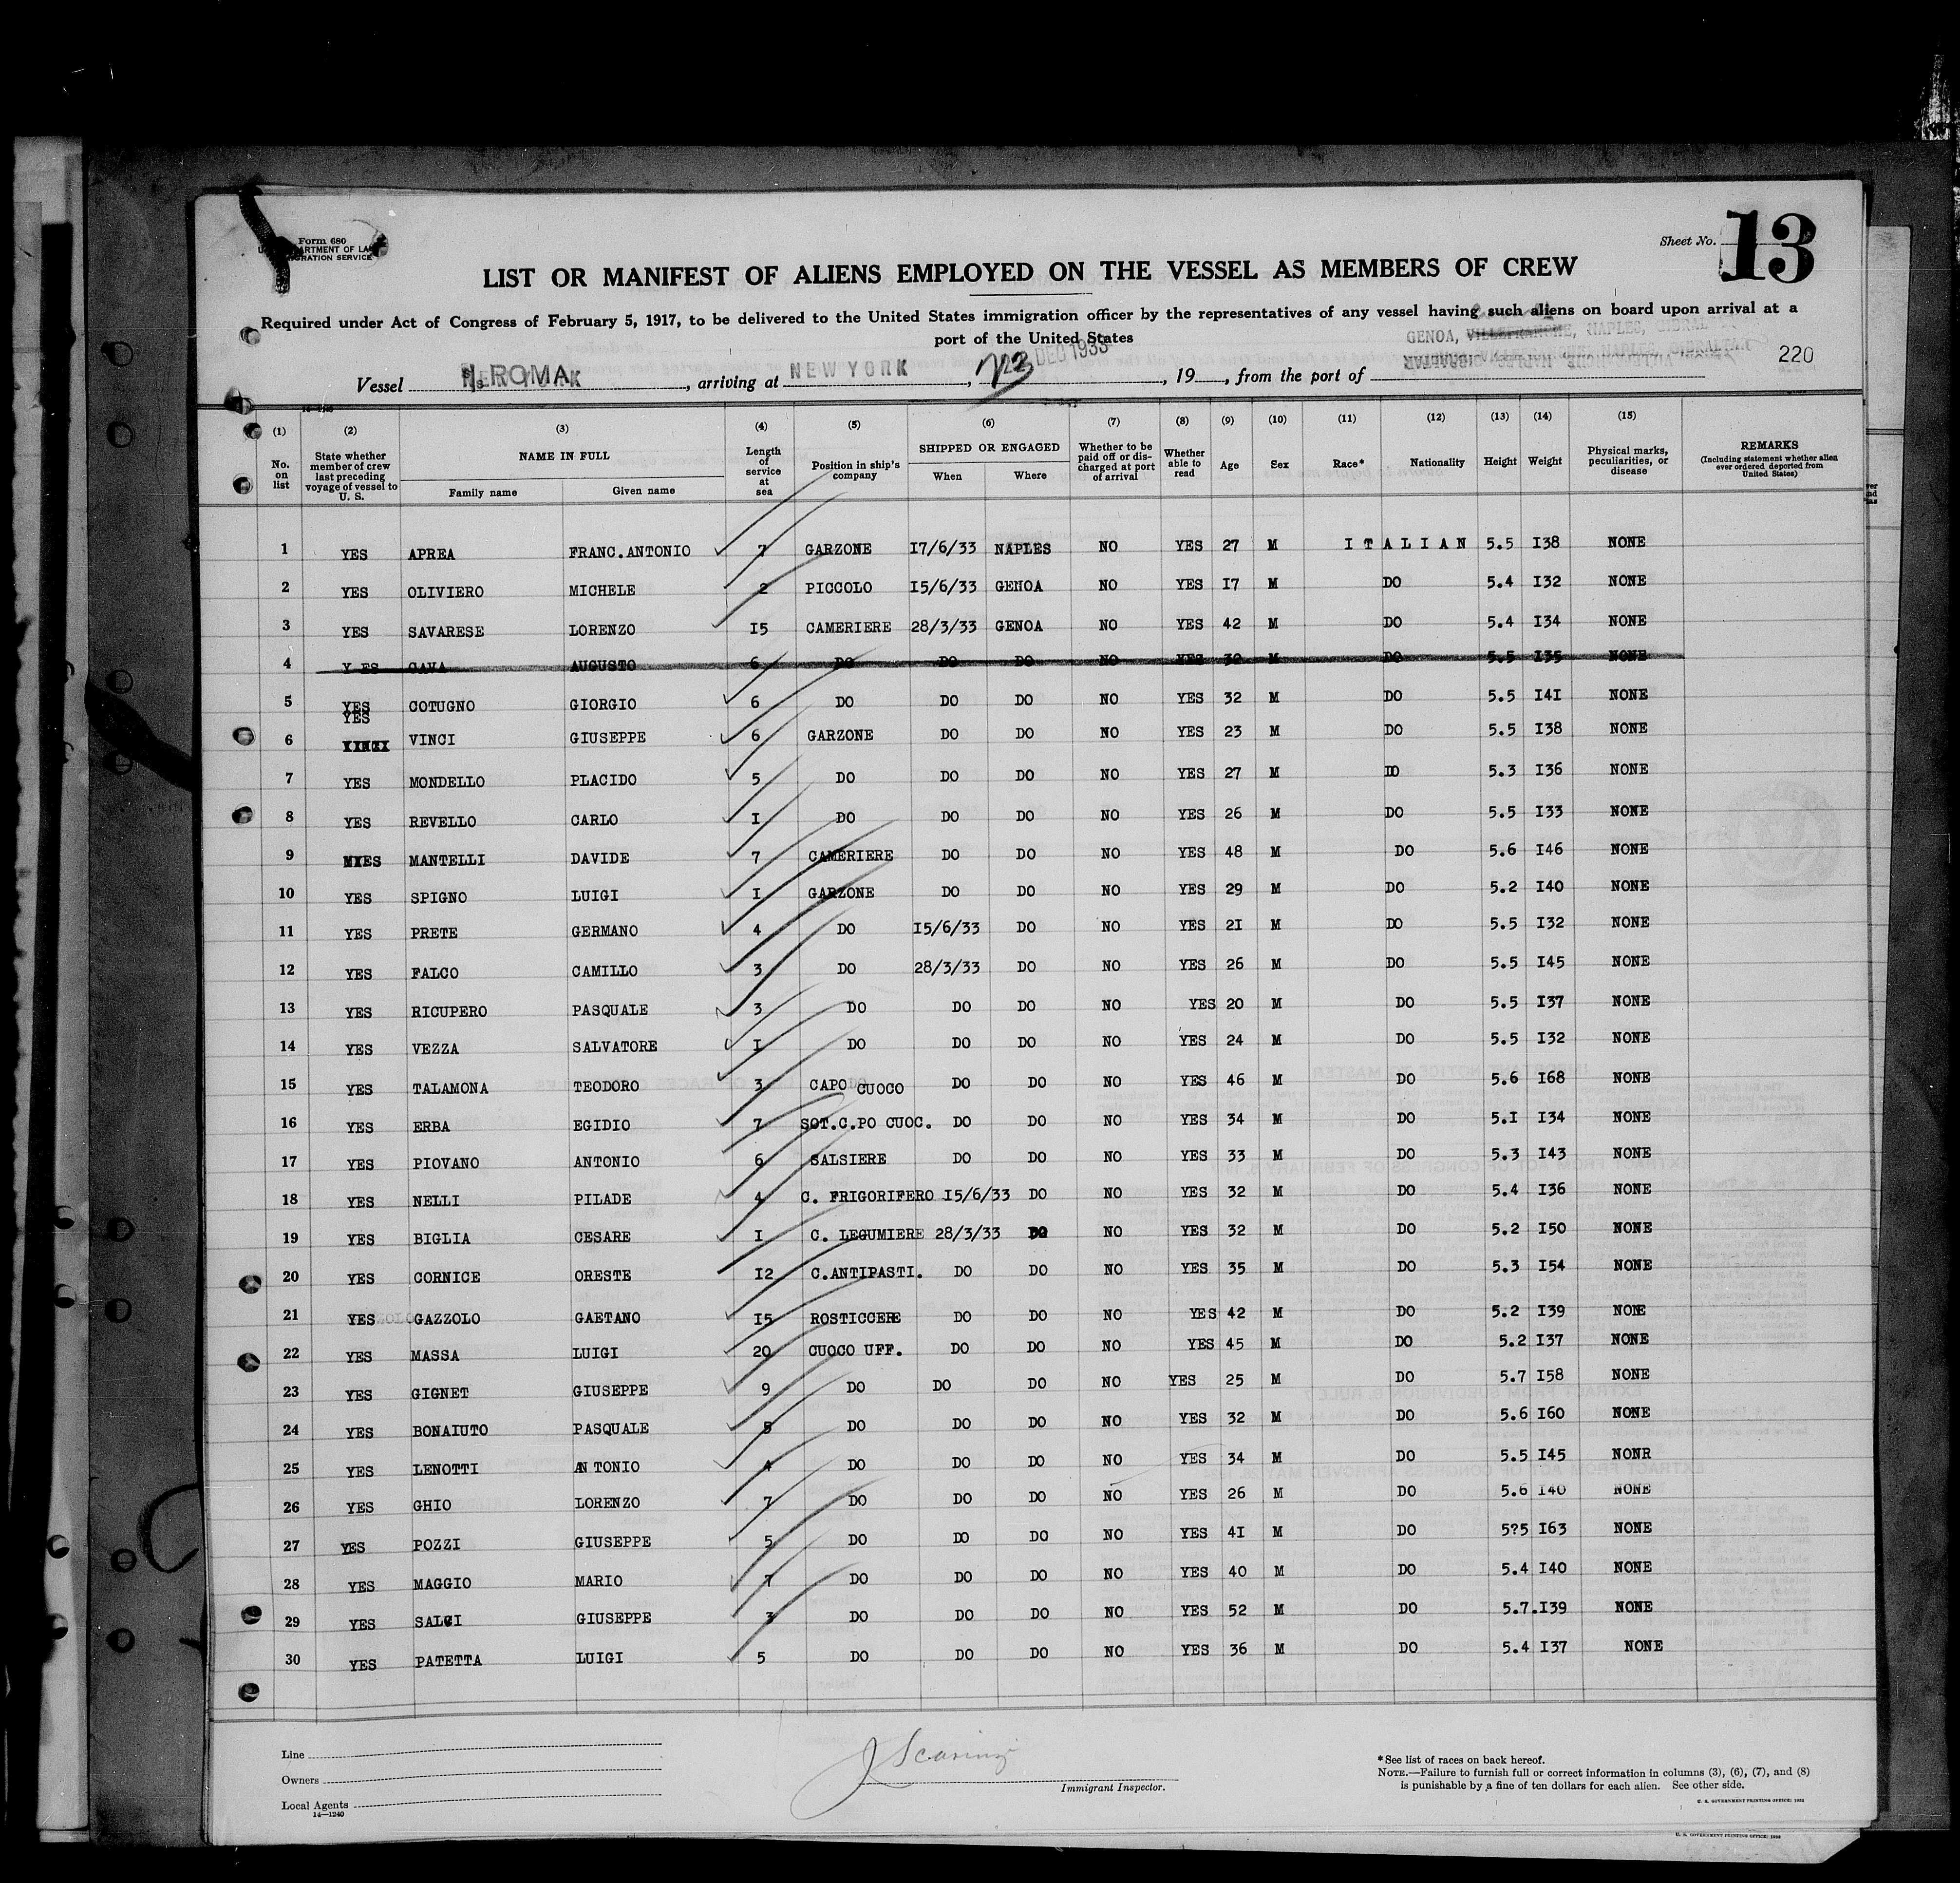 Form 680
Sheet No. 13
LIST OR MANIFEST OF ALIENS EMPLOYED ON THE VESSEL AS MEMBERS OF CREW
Required under Act of Congress of February 5, 1917, to be delivered to the United States immigration officer by the representatives of any vessel having such aliens on board upon arrival at a
port of the United States
GENOA, VILLEFRANCHE, NAPLES,
220
Vessel ROMA, arriving at NEW YORK, DEC 1933, 19 , from the port of
(1) (2) (3) (4) (5) (6) (7) (8) (9) (10) (11) (12) (13) (14) (15)
No. on list State whether member of crew last preceding voyage of vessel to U. S. NAME IN FULL Length of service at sea Position in ship's company SHIPPED OR ENGAGED Whether to be paid off or discharged at port of arrival Whether able to read Age Sex Race* Nationality Height Weight Physical marks, peculiarities, or disease REMARKS (Including statement whether alien ever ordered deported from United States)
Family name Given name When Where
1 YES APREA FRANC.ANTONIO 7 GARZONE I7/6/33 NAPLES NO YES 27 M ITALIAN 5.5 I38 NONE
2 YES OLIVIERO MICHELE 2 PICCOLO I5/6/33 GENOA NO YES I7 M DO 5.4 I32 NONE
3 YES SAVARESE LORENZO I5 CAMERIERE 28/3/33 GENOA NO YES 42 M DO 5.4 I34 NONE
4 Y ES CAVA AUGUSTO 6 DO DO DO NO YES 32 M DO 5.5 I35 NONE
5 YES COTUGNO GIORGIO 6 DO DO DO NO YES 32 M DO 5.5 I4I NONE
6 YES VINCI GIUSEPPE 6 GARZONE DO DO NO YES 23 M DO 5.5 I38 NONE
7 YES MONDELLO PLACIDO 5 DO DO DO NO YES 27 M DO 5.3 I36 NONE
8 YES REVELLO CARLO I DO DO DO NO YES 26 M DO 5.5 I33 NONE
9 YES MANTELLI DAVIDE 7 CAMERIERE DO DO NO YES 48 M DO 5.6 I46 NONE
10 YES SPIGNO LUIGI I GARZONE DO DO NO YES 29 M DO 5.2 I40 NONE
11 YES PRETE GERMANO 4 DO I5/6/33 DO NO YES 2I M DO 5.5 I32 NONE
12 YES FALCO CAMILLO 3 DO 28/3/33 DO NO YES 26 M DO 5.5 I45 NONE
13 YES RICUPERO PASQUALE 3 DO DO DO NO YES 20 M DO 5.5 I37 NONE
14 YES VEZZA SALVATORE I DO DO DO NO YES 24 M DO 5.5 I32 NONE
15 YES TALAMONA TEODORO 3 CAPO CUOCO DO DO NO YES 46 M DO 5.6 I68 NONE
16 YES ERBA EGIDIO 7 SOT.C.PO CUOC. DO DO NO YES 34 M DO 5.I I34 NONE
17 YES PIOVANO ANTONIO 6 SALSIERE DO DO NO YES 33 M DO 5.3 I43 NONE
18 YES NELLI PILADE 4 C. FRIGORIFERO I5/6/33 DO NO YES 32 M DO 5.4 I36 NONE
19 YES BIGLIA CESARE I C. LEGUMIERE 28/3/33 DO NO YES 32 M DO 5.2 I50 NONE
20 YES CORNICE ORESTE I2 C.ANTIPASTI. DO DO NO YES 35 M DO 5.3 I54 NONE
21 YES GAZZOLO GAETANO I5 ROSTICCERE DO DO NO YES 42 M DO 5.2 I39 NONE
22 YES MASSA LUIGI 20 CUOCO UFF. DO DO NO YES 45 M DO 5.2 I37 NONE
23 YES GIGNET GIUSEPPE 9 DO DO DO NO YES 25 M DO 5.7 I58 NONE
24 YES BONAIUTO PASQUALE 5 DO DO DO NO YES 32 M DO 5.6 I60 NONE
25 YES LENOTTI AN TONIO 4 DO DO DO NO YES 34 M DO 5.5 I45 NONR
26 YES GHIO LORENZO 7 DO DO DO NO YES 26 M DO 5.6 I40 NONE
27 YES POZZI GIUSEPPE 5 DO DO DO NO YES 4I M DO 5?5 I63 NONE
28 YES MAGGIO MARIO 7 DO DO DO NO YES 40 M DO 5.4 I40 NONE
29 YES SALGI GIUSEPPE 3 DO DO DO NO YES 52 M DO 5.7.I39 NONE
30 YES PATETTA LUIGI 5 DO DO DO NO YES 36 M DO 5.4 I37 NONE
Line
Owners
Local Agents
14—1240
Immigrant Inspector.
*See list of races on back hereof.
NOTE.—Failure to furnish full or correct information in columns (3), (6), (7), and (8)
is punishable by a fine of ten dollars for each alien. See other side.
U. S. GOVERNMENT PRINTING OFFICE: 1932